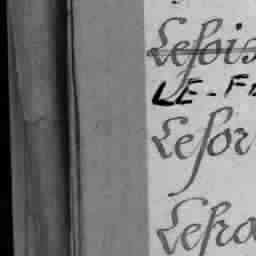 Lesois
LE-F
Lesor
Lesra